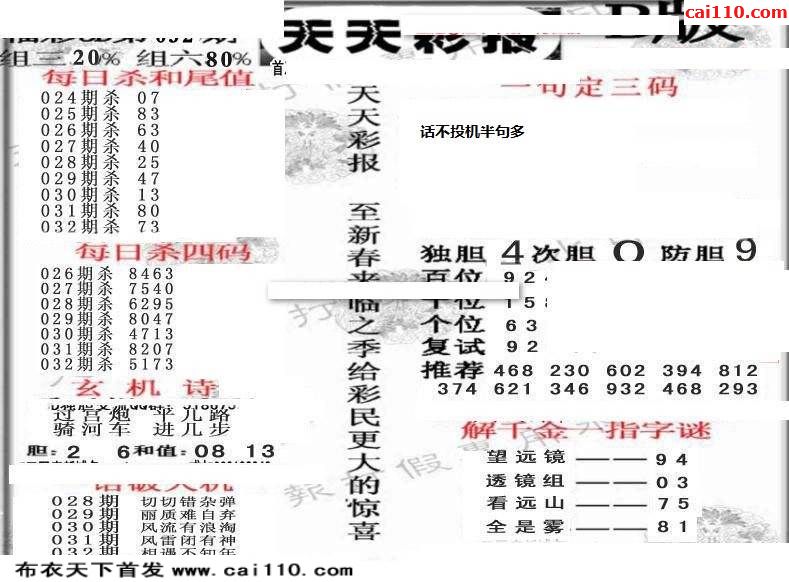 cai110.com
天天彩报
B版
组三20% 组六80%
每日杀和尾值
024期杀 07
025期杀 83
026期杀 63
027期杀 40
028期杀 25
029期杀 47
030期杀 13
031期杀 80
032期杀 73
每日杀四码
026期杀 8463
027期杀 7540
028期杀 6295
029期杀 8047
030期杀 4713
031期杀 8207
032期杀 5173
玄机诗
过宫炮 平九路
骑河车 进几步
胆:2 6和值:08 13
028期 切切错杂弹
029期 丽质难自弃
030期 风流有浪淘
031期 风雷闭有神
032期 相遇不知年
天天彩报 至新春来临之季给彩民更大的惊喜
一句定三码
话不投机半句多
独胆4次胆0防胆9
百位 9 2 4
十位 1 5 8
个位 6 3
复试 9 2
推荐 468 230 602 394 812
374 621 346 932 468 293
解千金一指字谜
望远镜——— 9 4
透镜组——— 0 3
看远山——— 7 5
全是雾——— 8 1
布衣天下首发 www.cai110.com